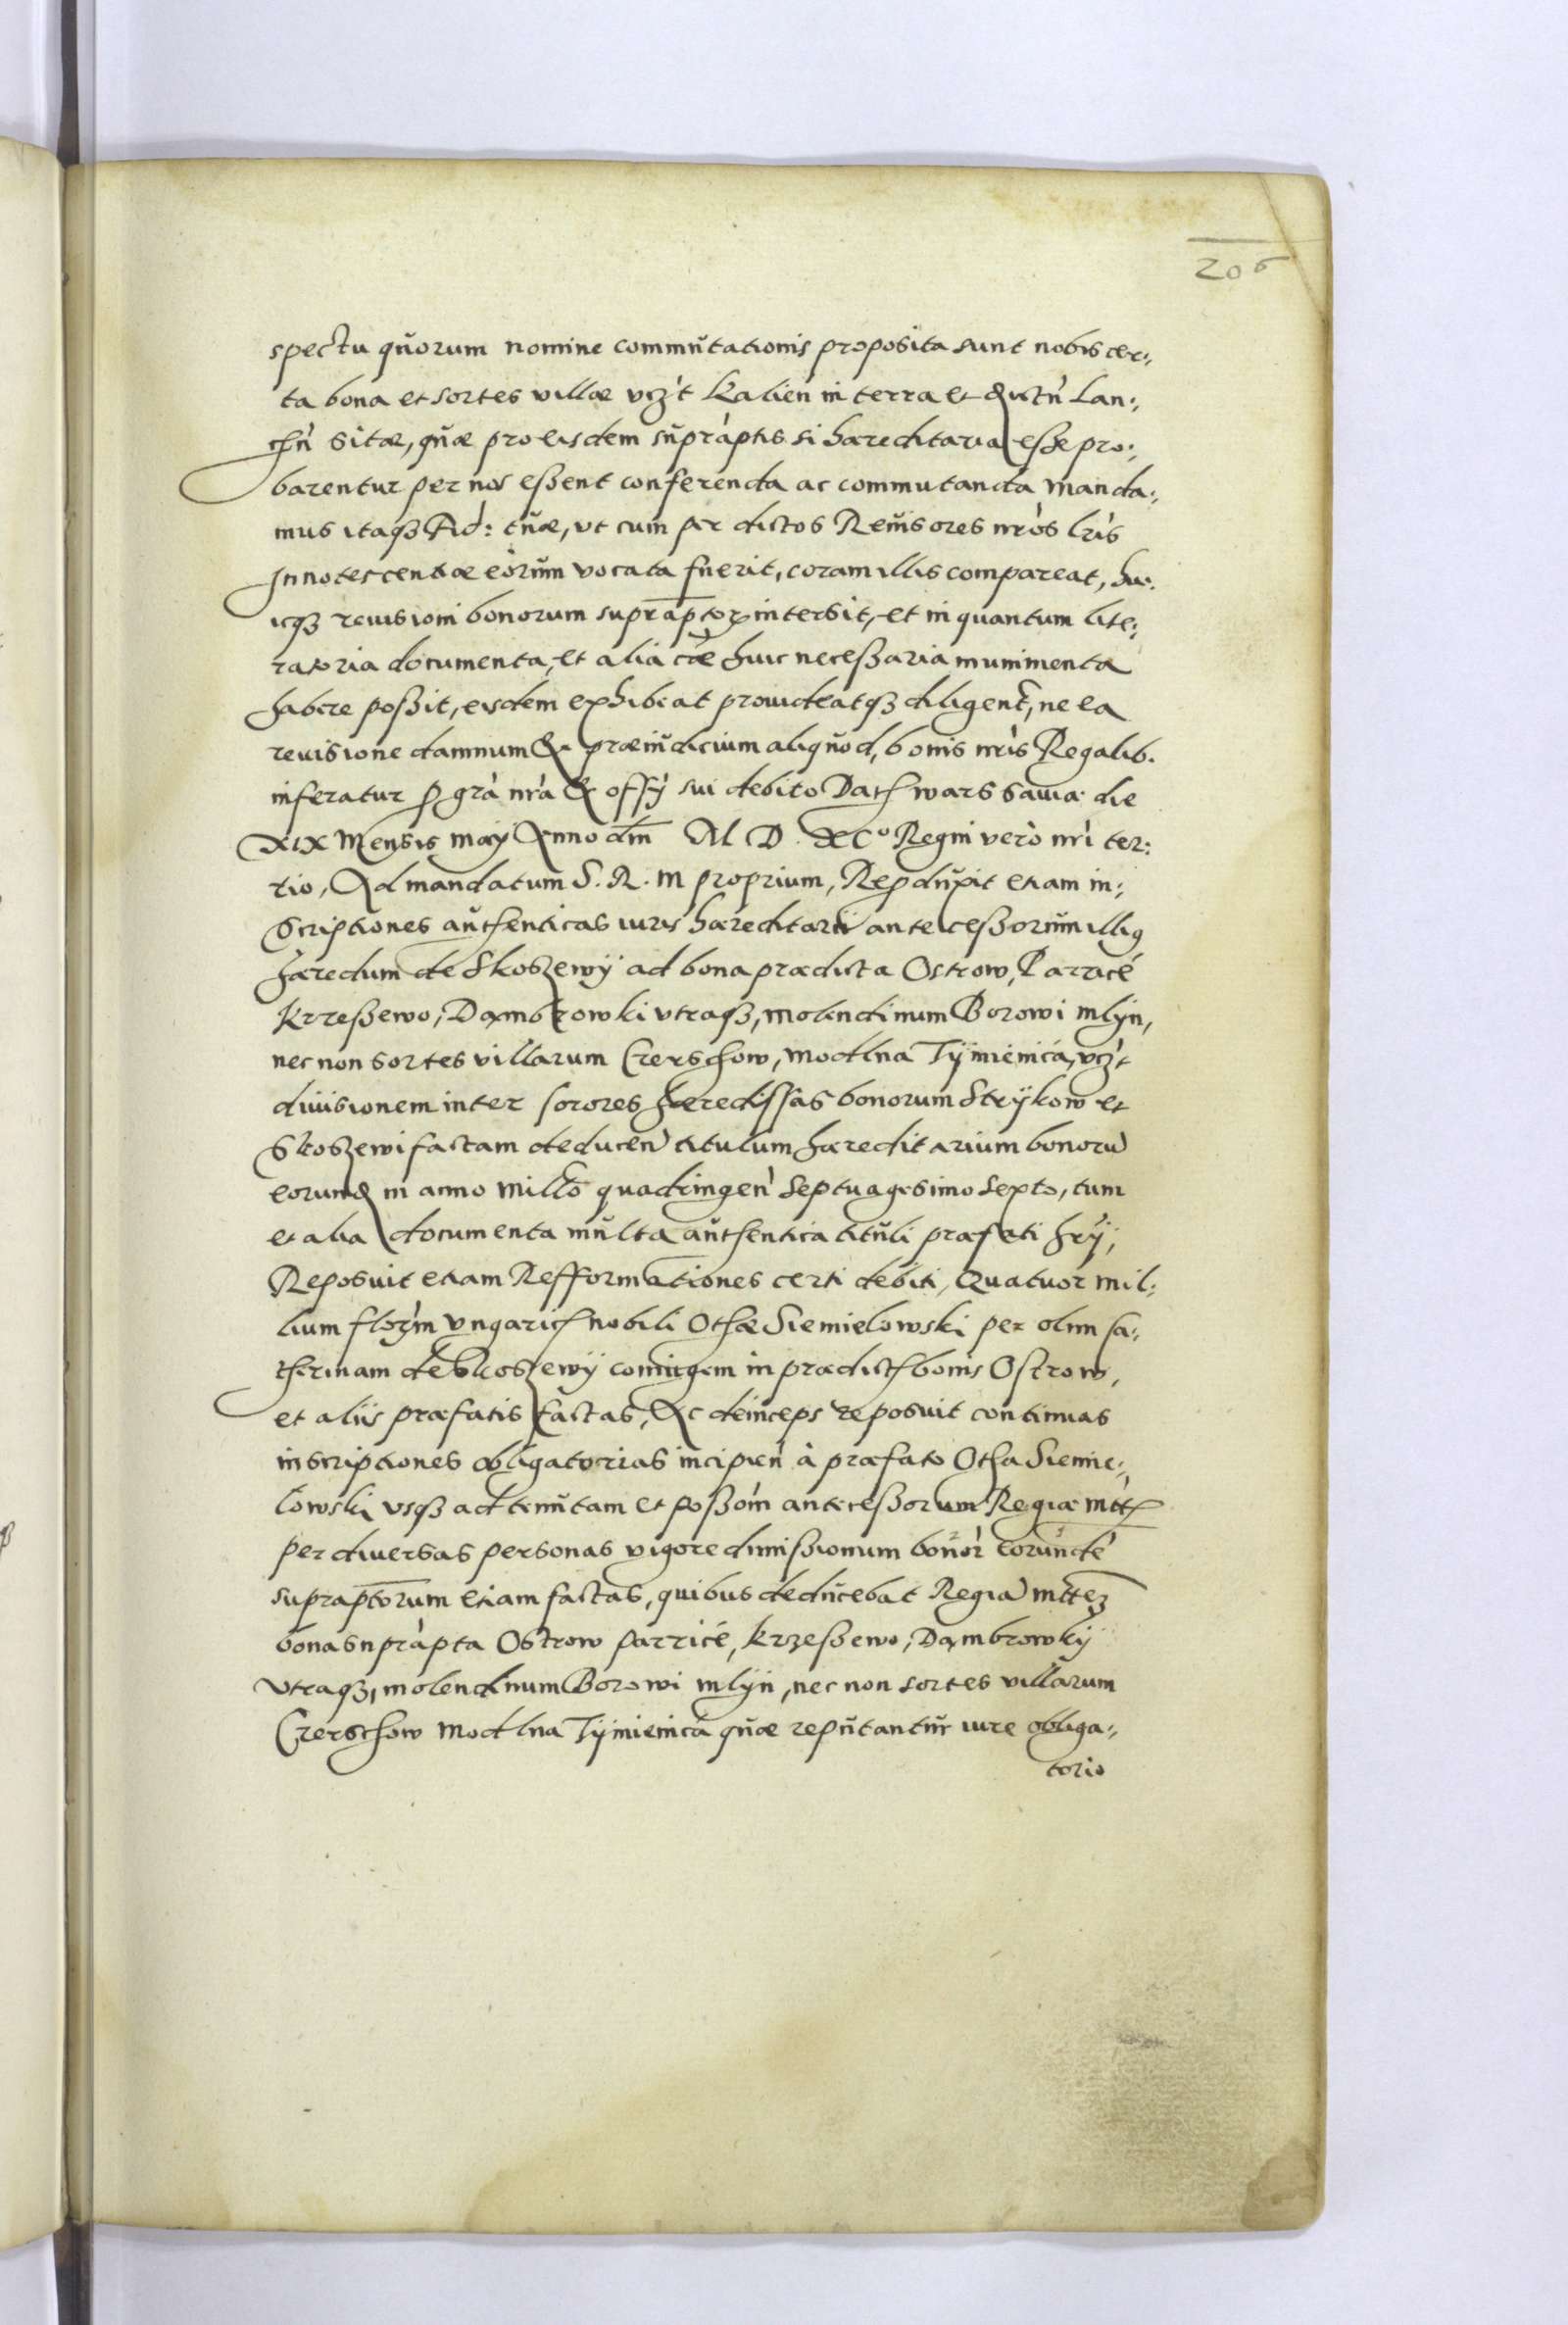 206
spectu quorum nomine commutationis proposita sunt nobis cer:,
ta bona et sortes villæ vcz't Kalien in terra et distn̄ Lan:,
chn̄ sitæ, quæ pro eisdem supràptis si hæreditaria esse pro:,
barentur per nos essent conferenda ac commutanda manda:,
mus itaq₃ Fid: tuæ, vt cum per dictos Reuisores nr̀os lr̀is
Innotescentiæ eorum vocata fuerit, coram illis compareat, hu:
icq₃ reuisioni bonorum suprāptor intersit, et in quantum lite:,
ratoria documenta, et alia cāe huic necessaria munimenta
habere possit, eisdem exhibeat prouideatq₃ diligenť, ne ea
reuisione damnum & præiudicium aliquod, bonis nr̀is Regalib.
inferatur p grà nr̀a & offÿ sui debito Dat Warssauiæ die
XIX Mensis maÿ Anno dm̄ M D XCº Regni verò nr̀i ter:
tio, Ad mandatum S. R. M proprium, Reproduxit etiam in:,
scriptiones authenticas iuris hæreditarii antecessorum illiq
hæredum de Skoszewÿ ad bona prædicta Ostrow, Parzicé
Krzessewo, Dambrowki vtraq₃, molendinum Borowi mlÿn,
nec non sortes villarum Czerschow, modlna Tÿmienica, vcz't
diuisionem inter sorores hæredissas bonorum Strÿkow et
Skoszewi factam deducen̄ titulum hæreditarium bonorū
eorund in anno millō quadringen̄ septuagesimo sexto, tum
et alia documenta multa authentica tituli præfati hrÿ,
Reposuit etiam Refformationes certi debiti, Quatuor mil:
lium flor̀m vngarich nobili Othæ Siemielowski per olim Ca:,
therinam de Skoszewÿ coniugem in prædicth bonis Ostrow,
et aliis præfatis factas, Ac deinceps reposuit continuas
inscriptiones obligatorias incipien̄ à præfato Otha Siemie:,
lowski vsq₃ ad tenutam et possom̄ antecessorum Regiæ mtt
per diuersas personas vigore dimissionum bonor̀ eorundē
supraptorum etiam factas, quibus deducebat Regiā mttē
bona supràpta Ostrow parzicé, Krzessewo, Dambrowkÿ
vtraq₃, molendinum Borowi mlÿn, nec non sortes villarum
Czerschow modlna Tÿmienica quæ reputantur iure obliga:,
torio